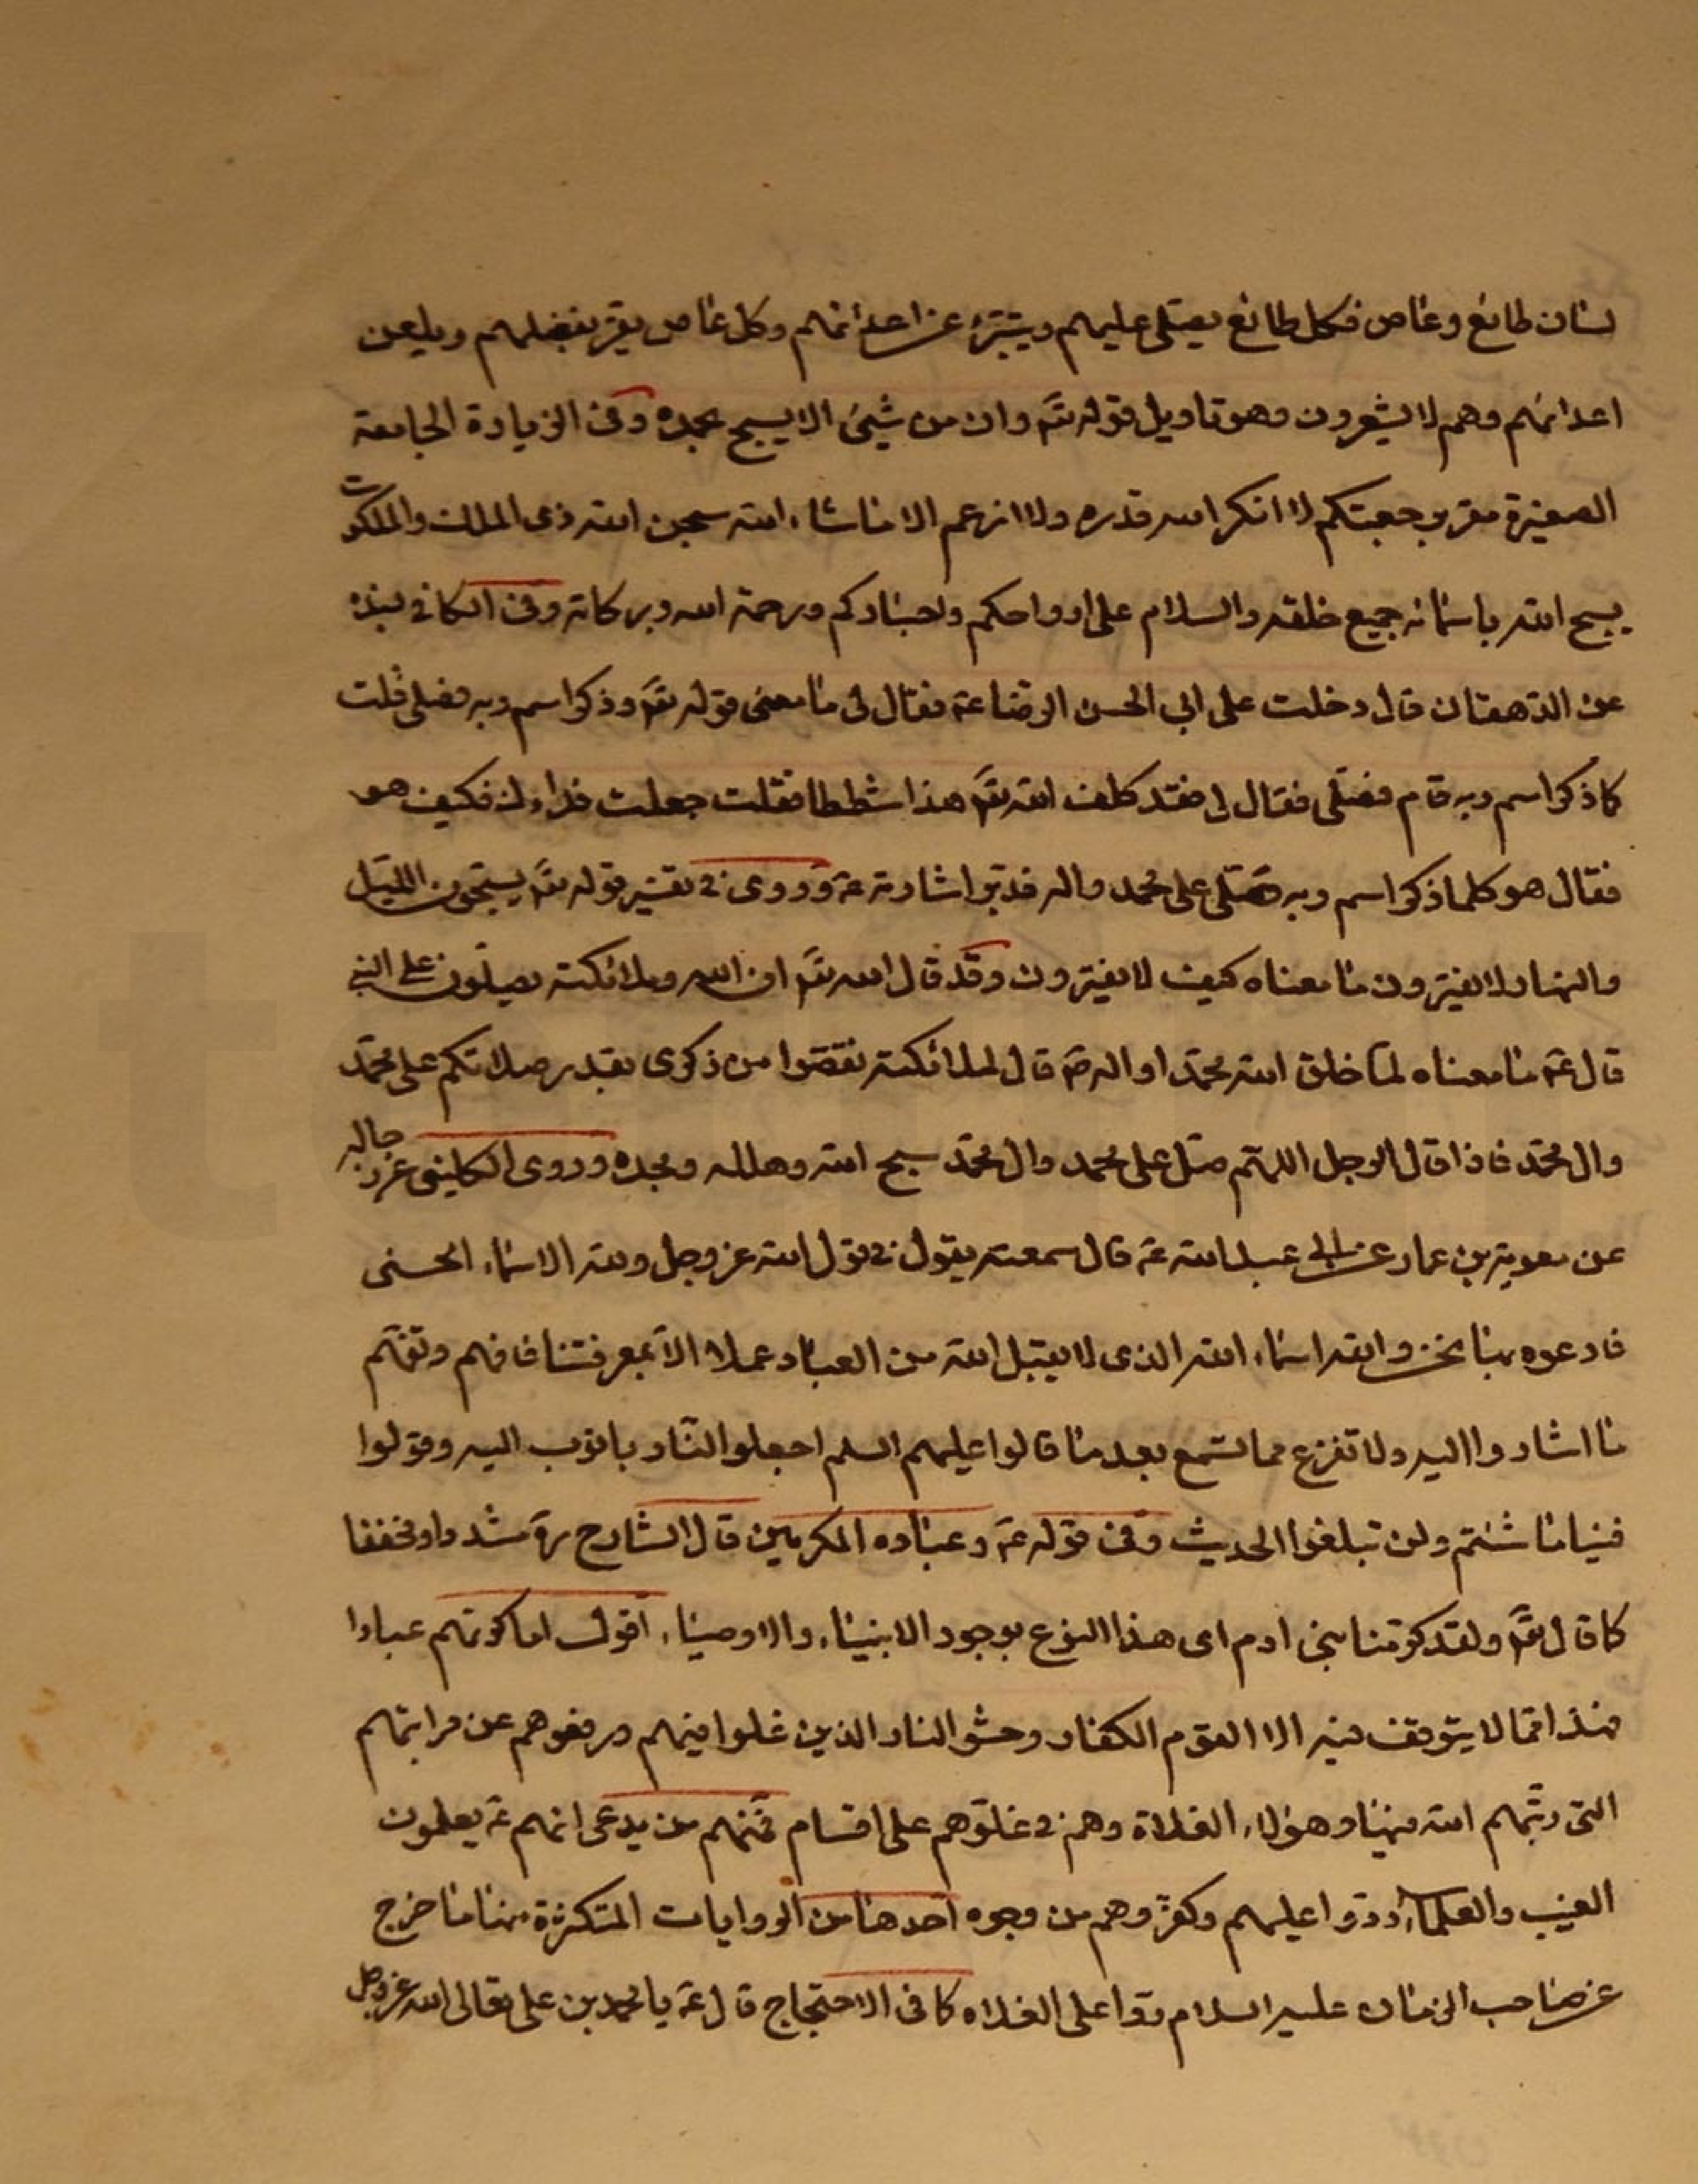 لسان طائع وعاص فكل طائع يصلى عليهم ويتبرء عن اعدائهم وكل عاص يقر بفضلهم ويلعن
اعدائهم وهم لا يشعرون وهو تاويل قوله تعَ وان من شيئ الا يسبح بحمده وفى الزيارة الجامعة
الصغيرة مقر برجعتكم لا انكر لله قدره ولا ازعم الا ما شاء الله سبحن الله ذى الملك والملكوت
يسبح الله باسمائه جميع خلقه والسلام على ارواحكم واجسادكم ورحمة الله وبركاته وفى الكافى بسنده
عن الدهقان قال دخلت على ابي الحسن الرضا عَ فقال لى ما معنى قوله تعَ وذكر اسم ربه فصلى قلت
كلما ذكر اسم ربه قام فصلى فقال لى فقد كلف الله تعَ هذا شططا فقلت جعلت فداءك فكيف هو
فقال هو كلما ذكر اسم ربه صلى على محمد واله فدبر اشارته عَ وروى فى تفسير قوله تعَ يسبحون الليل
والنهار لا يفترون ما معناه كيف لا يفترون وقد قال الله تعَ ان الله وملائكته يصلون على النبى
قال عَ ما معناه لما خلق الله محمدا واله صَ قال لملائكته نقصوا من ذكرى بقدر صلاتكم على محمد
وال محمد فاذا قال الرجل اللهم صل على محمد وال محمد سبح الله وهلله ومجده وروى الكلينى عن رجاله
عن معوية بن عمار عن ابي عبد الله عَ قال سمعته يقول فى قول الله عز وجل ولله الاسماء الحسنى
فادعوه بها نحن والله اسماء الله الذى لا يقبل الله من العباد عملا الا بمعرفتنا فافهم وتفهم
ما اشاروا اليه ولا تفزع مما تسمع بعد ما قالوا عليهم السلم اجعلوا لنا ربا نؤب اليه وقولوا
فينا ما شئتم ولن تبلغوا الحديث وفى قوله عَ وعباده المكرمين قال الشارح ره مشددا ومخففا
كما قال تعَ ولقد كرمنا بنى ادم اى هذا النوع بوجود الانبياء والاوصياء اقول اما كونهم عبادا
فهذا مما لا يتوقف فيه الا القوم الكفار وحشو النار الذين غلوا فيهم ورفعوهم عن مراتبهم
التى رتبهم الله فيها وهؤلاء الغلاة وهم فى غلوهم على اقسام فمنهم من يدعى انهم عَ يعلمون
الغيب والعلماء ردوا عليهم وكفروهم من وجوه احدها من الروايات المتكثرة منها ما خرج
عن صاحب الزمان عليه السلام ردا على الغلاه كما فى الاحتجاج قال عَ يا محمد بن على تعالى الله عز وجل